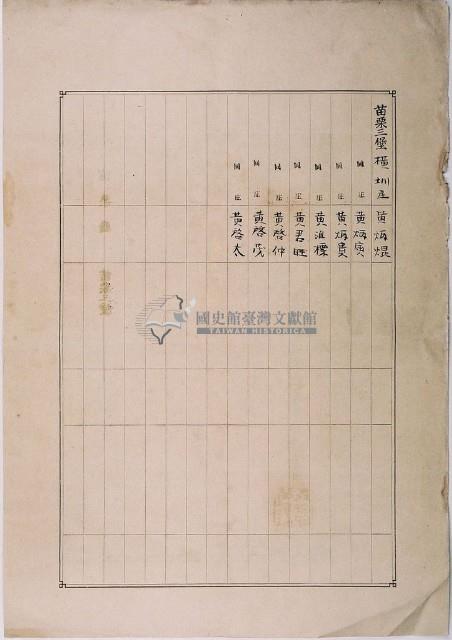 苗栗三堡 橫圳庄 黃炳焜
同 庄 黃炳寅
同 庄 黃炳貴
同 庄 黃淮標
同 庄 黃君旺
同 庄 黃啓仲
同 庄 黃啓茂
同 庄 黃啓太
國史館臺灣文獻館
TAIWAN HISTORICA